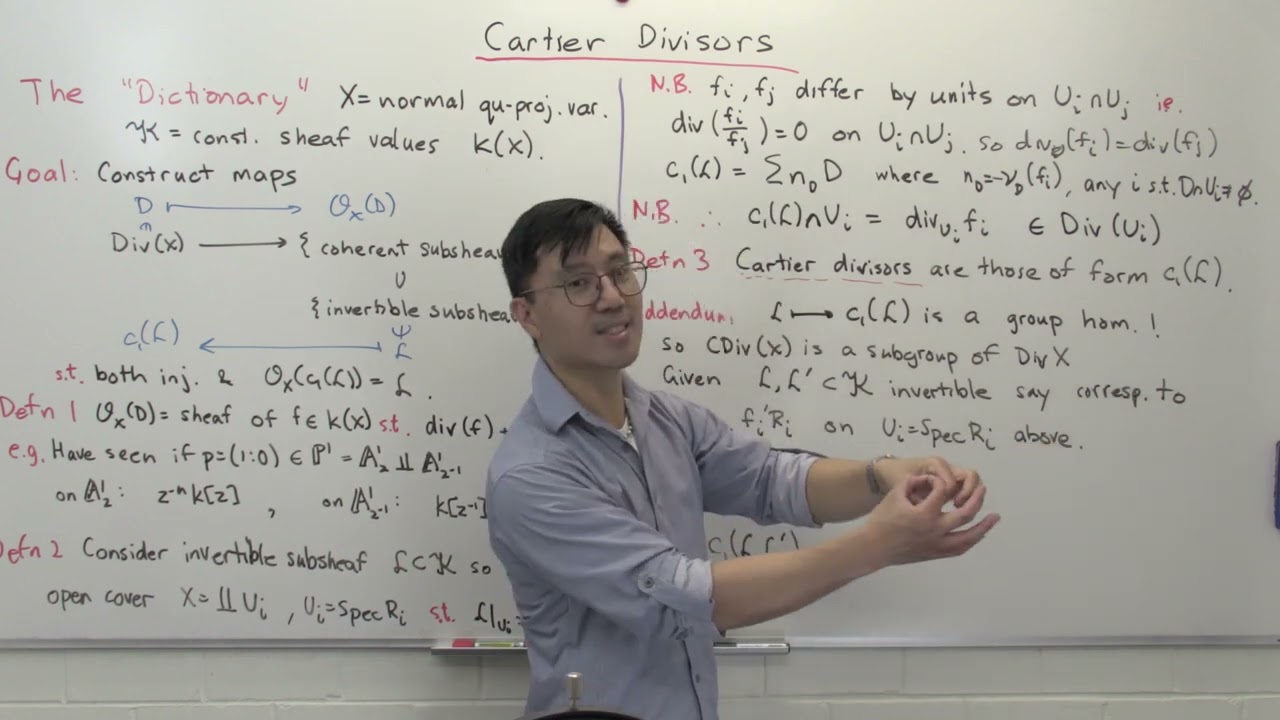 Cartier Divisors
The "Dictionary" X = normal qu-proj. var.
𝒦 = const. sheaf values k(X).
Goal: Construct maps
D ⟼ 𝒪_X(D)
∩
Div(X) ⟶ { coherent subshea
∪
{ invertible subshea
c₁(ℒ) ⟵ ℒ
s.t. both inj. & 𝒪_X(c₁(ℒ)) = ℒ.
Defn 1 𝒪_X(D) = sheaf of f ∈ k(X) s.t. div(f) +
e.g. Have seen if p = (1:0) ∈ ℙ¹ = 𝔸¹_z ⨿ 𝔸¹_z⁻¹
on 𝔸¹_z : z⁻ⁿ k[z] , on 𝔸¹_z⁻¹ : k[z⁻¹]
Defn 2 Consider invertible subsheaf ℒ ⊂ 𝒦 so
open cover X = ⨿ U_i , U_i = Spec R_i s.t. ℒ|_{U_i} =
N.B. f_i , f_j differ by units on U_i ∩ U_j ie.
div(f_i/f_j) = 0 on U_i ∩ U_j. so div(f_i) = div(f_j)
c₁(ℒ) = Σ n_D D where n_D = -ν_D(f_i), any i s.t. D∩U_i ≠ ∅.
N.B. ∴ c₁(ℒ) ∩ U_i = div_{U_i} f_i ∈ Div(U_i)
Defn 3 Cartier divisors are those of form c₁(ℒ).
ddendum: ℒ ⟼ c₁(ℒ) is a group hom. !
so CDiv(X) is a subgroup of Div X
Given ℒ, ℒ' ⊂ 𝒦 invertible say corresp. to
f_i' R_i on U_i = Spec R_i above.
c₁(ℒ ℒ')